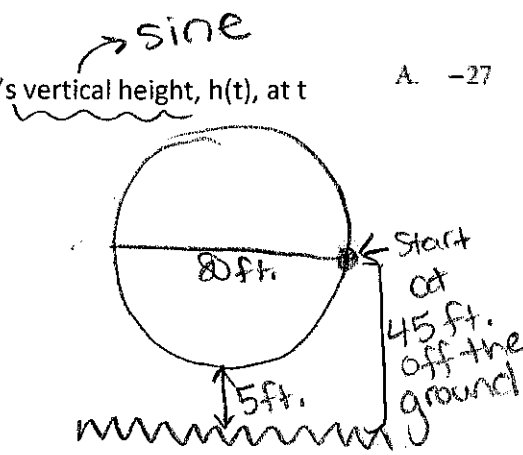 sine
's vertical height, h(t), at t
A. -27
80 ft.
Start
at
45 ft.
off the
ground
5ft.